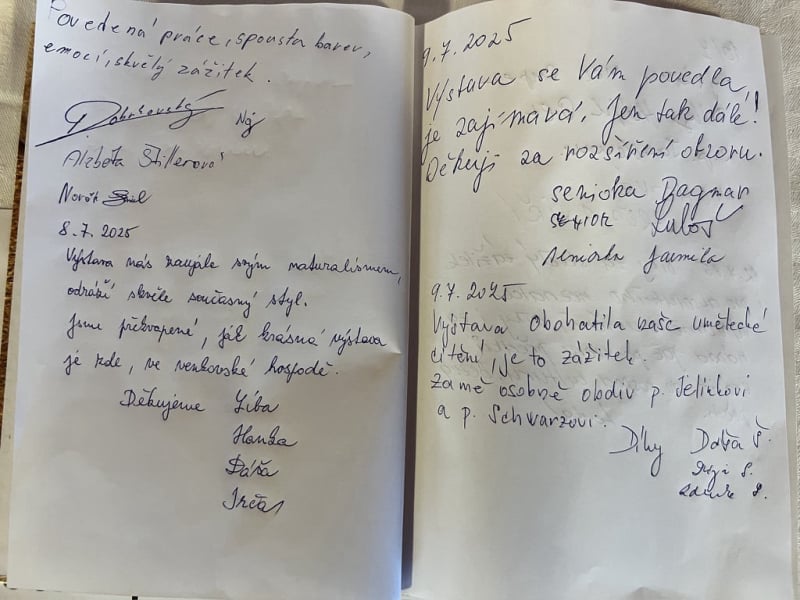 Povedená práce, spousta barev,
emocí, skvělý zážitek.
Alžběta Štillerová
Novák
8. 7. 2025
Výstava nás zaujale svým naturalismem,
odráží skvěle současný styl.
Jsme překvapené, jak krásná výstava
je zde, ve venkovské hospodě.
Děkujeme Liba
Hanka
Dáša
9. 7. 2025
Výstava se Vám povedla,
je zajímavá. Jen tak dále!
Děkuji za rozšíření obzoru.
seniorka Dagmar
senior Luboš
seniorka Jarmila
9. 7. 2025
Výstava obohatila naše umělecké
cítění, je to zážitek.
Za mě osobně obdiv p. Jelínkovi
a p. Schwarzovi.
Díky Dáša Š.